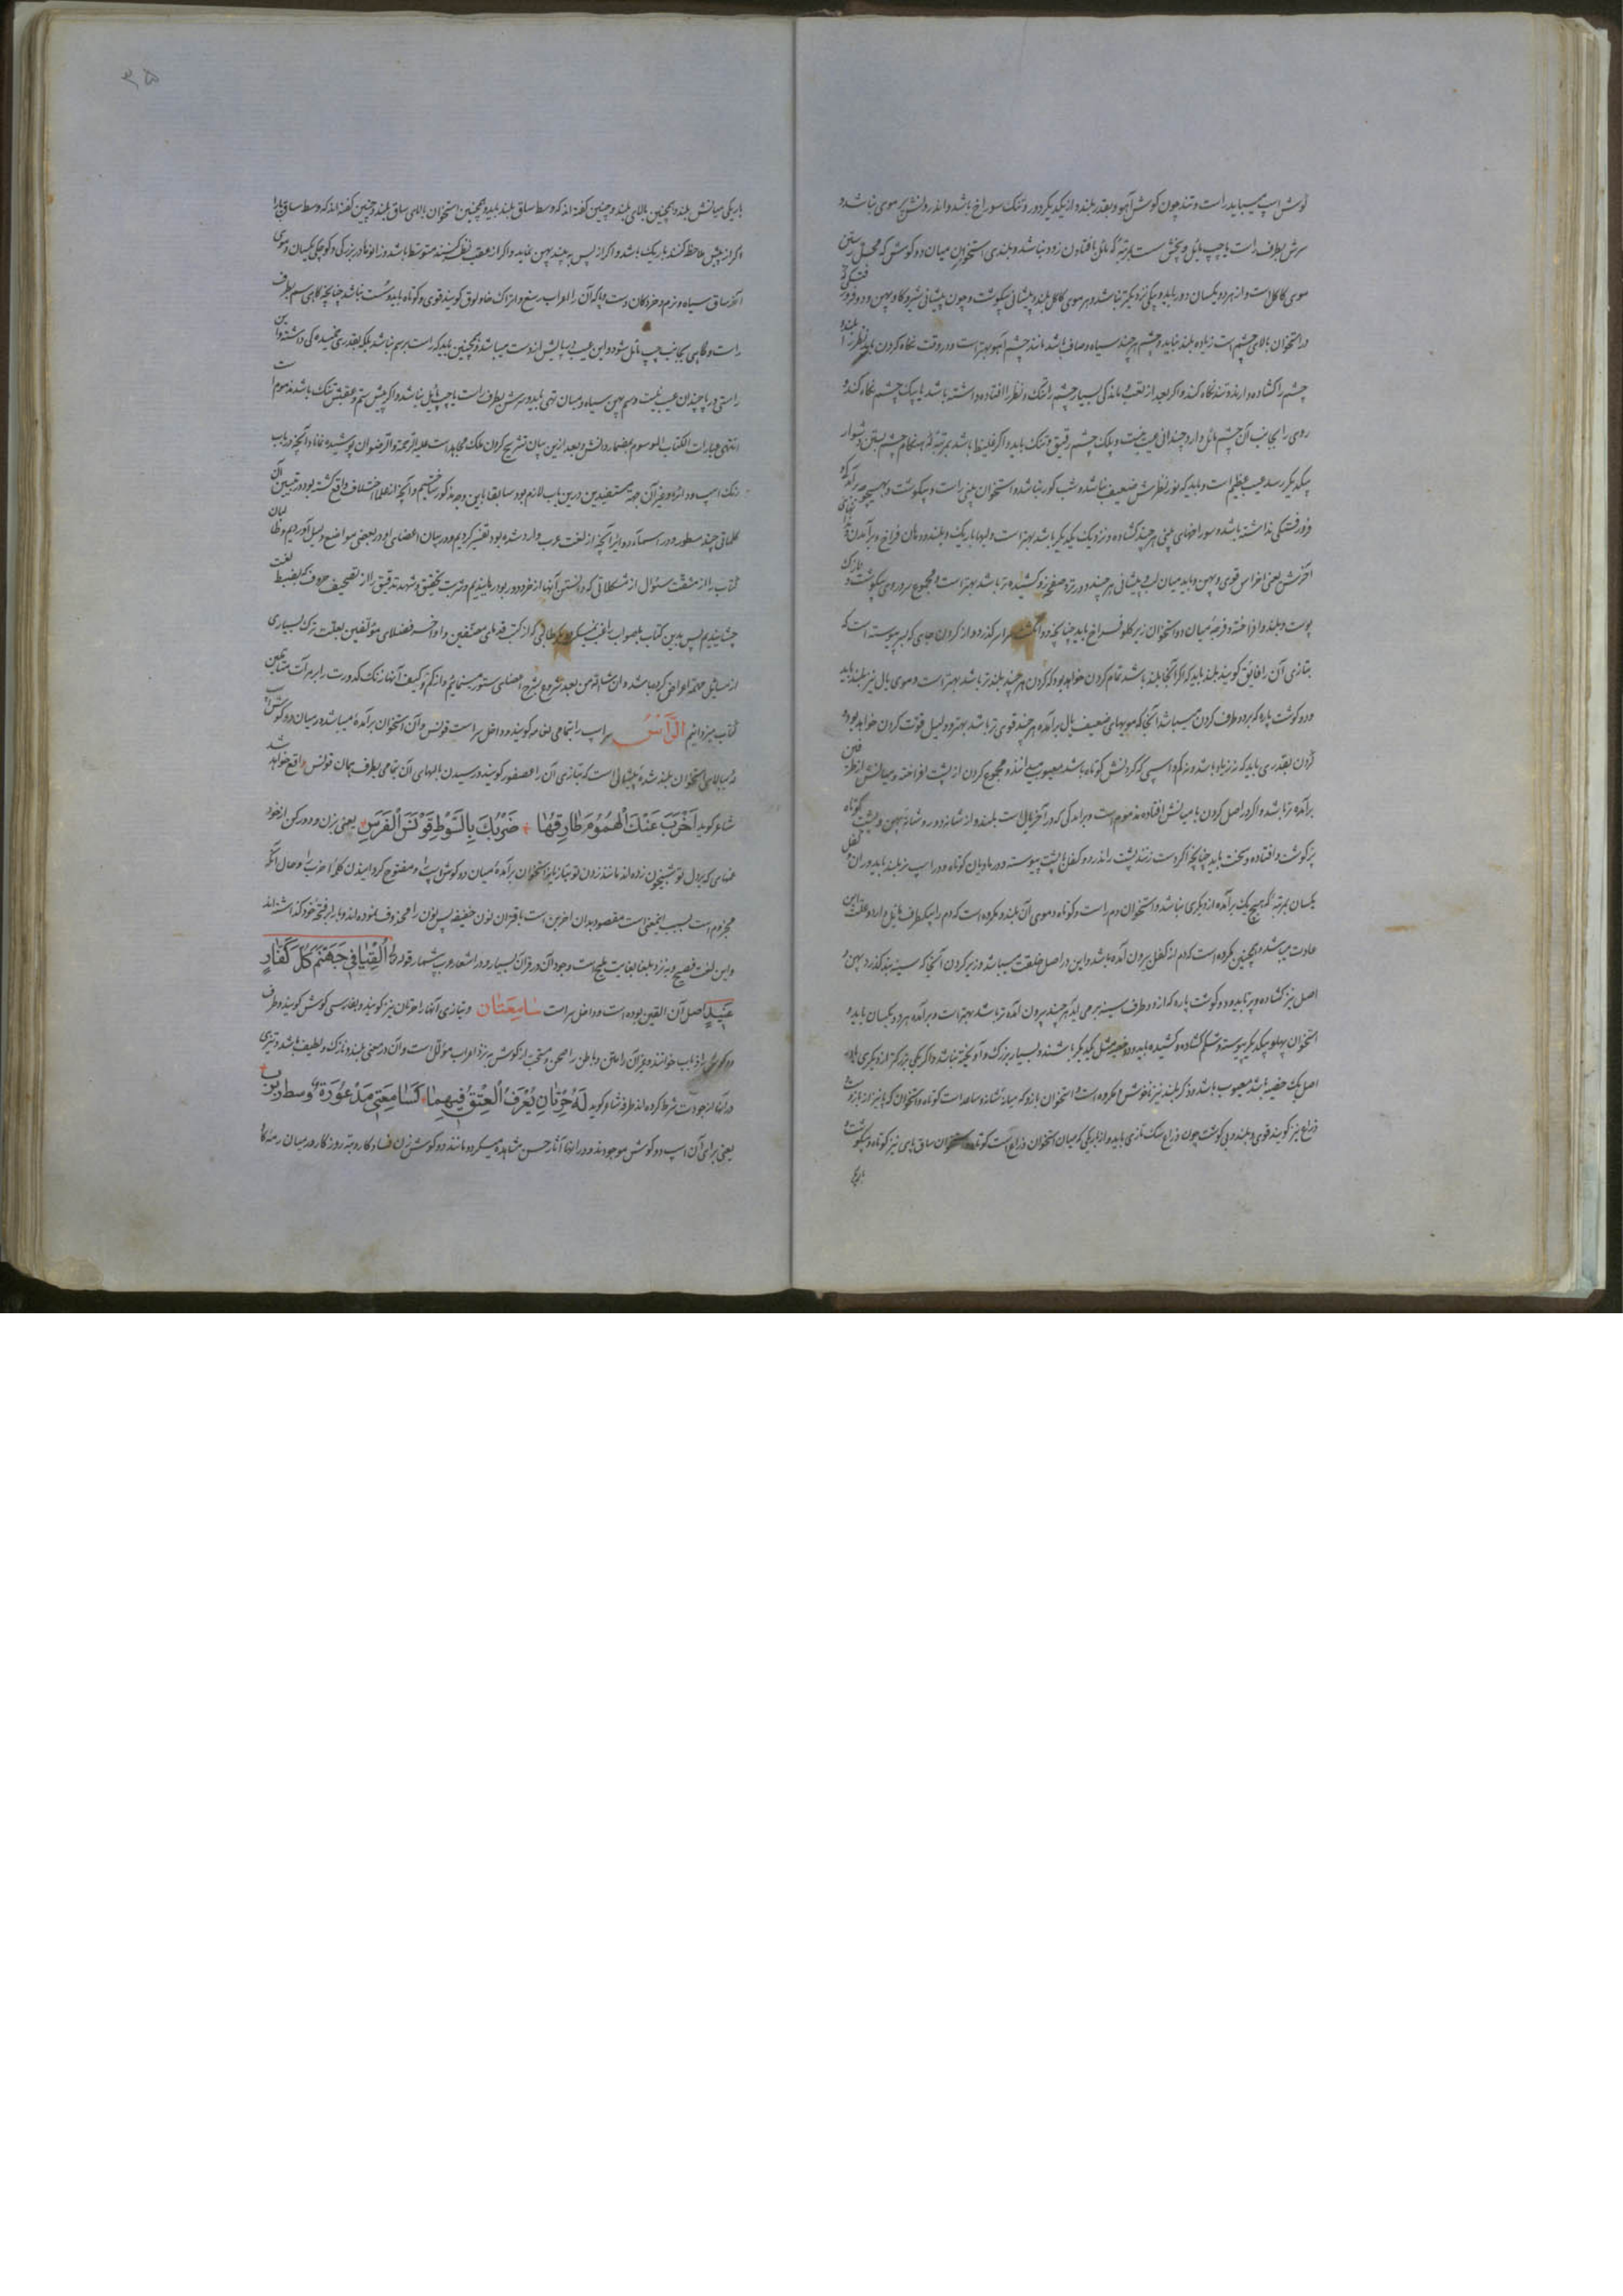 گوش اسپ میباید راست و تند چون گوش آهو و بقدر بلند و از یکدیگر دور و تنک سوراخ باشد و اندرونش پر موی نباشد و
سرش بطرف راست یا چپ مائل و پخش بمرتبه که مائل بافتادن زود نباشد و بلندی استخوان میان دو گوش که محل رستن
موی کاکل است و از هر دو یکسان دور باید و یکی نزدیکتر نباشد و هر موی کاکل بلند و پیشانی بیکوشت و چون پیشانی شیر و گاو پهن و دو فرو رفتگی
در استخوان بالای چشم است زیاده بلند نباید و چشم هر چند سیاه و صاف باشد مانند چشم آهو بهتر است و در وقت نگاه کردن باید نظر را بلند و
چشم را کشاده دارد و تند نگاه کند و اگر بعد از تعب و ماندگی بسیار چشم را تنک و نظر را افتاده داشته باشد یا بیک چشم نگاه کند و
روی را بجانب آن چشم مائل دارد چندانی عیب نیست و پلک چشم رقیق و تنک باید و اگر غلیظ باشد بمرتبه که هنگام چشم بستن دشوار
بیکدیگر رسد عیب عظیم است و باید که نور نظرش ضعیف نباشد و شب کور نباشد و استخوان بینی راست و بیکوشت و بهیچوجه برآمدگی و
فرو رفتگی نداشته باشد و سوراخهای بینی هر چند کشاده و نزدیک یکدیگر باشد بهتر است و لبها باریک و بلند و دهان فراخ و برآمدن
آخرش یعنی اضراس قوی و پهن و باید میان لب و پیشانی هر چند دورتر و صفحه رو کشیده تر باشد بهتر است و مجموع سر و روی بیکوشت و نازک
پوست و بلند و افراخته و فرجه میان دو استخوان زیر گلو فراخ باید چنانچه دو انگشت قرار گذرد و از گردن جای که بسر پیوسته است که
بتازی آن را فایق گویند بلند باید که اگر آنجا بلند باشد تمام گردن خواهد بود و گردن هر چند بلندتر باشد بهتر است و موی یال نیز بلند باید
و دو گوشت پاره که بر دو طرف گردن میباشد آنجا که مویهای ضعیف یال برآمده هر چند قوی تر باشد بهتر و دلیل قوت گردن خواهد بود و
گردن بقدری باید که نه زیاد باشد و نه کم و اسپی که گردنش کوتاه باشد معیوب میدانند و مجموع گردن از پشت افراخته و میانش از طرفین
برآمده تر باشد و اگر در اصل گردن یا میانش افتاده مذموم است و برآمدگی که در آخر یال است بلند و از شانه دور و شانه پهن و پشت کوتاه
پر گوشت و افتاده و سخت باید چنانچه اگر دست زنند پشت را نذرد و کفل با پشت پیوسته و در مادیان کوتاه و در اسپ نر بلند باید و ران و کفل
یکسان بمرتبه که هیچ یک برآمده از دیگری نباشد و استخوان دم راست و کوتاه و موی آن بلند و مکروه است که دم را بیکطرف مایل دارد و علت این
عادت میباشد و همچنین مکروه است که دم از کفل بیرون آمده باشد و این در اصل خلقت میباشد و زیر گردن آنجا که سینه بند گذرد پهن و
اصل نیز کشاده و پر باید و دو گوشت پاره که از دو طرف سینه برمی آید هر چند بیرون آمده تر باشد بهتر است و برآمده هر دو یکسان باید و
استخوان پهلو بیکدیگر پیوسته و شکم کشاده و کشیده باید و دو خصیه مثل یکدیگر باشند و بسیار بزرگ و آویخته نباشد و اگر یکی بزرگتر از دیگری باشد
اصل یک خصیه باشد معیوب باشد و ذکر بلند نیز ناخوش و مکروه است و استخوان بازو که میانه شانه و ساعد است کوتاه و استخوان
ذراع نیز گویند قوی و بلند و بی گوشت چون ذراع سگ تازی باید و از باریکی که میان استخوان ذراع است کوتاه و استخوان ساق پای نیز کوتاه و بیکوشت و
باریکی
۳۵
باریکی میانش بلند و همچنین بالای بلند و چنین گفته اند که وسط ساق بلند باید و همچنین استخوان بالای ساق بلند و چنین گفته اند که وسط ساق پا را
اگر از پیش ملاحظه کنند باریک باشد و اگر از پس هر چند پهن نماید و اگر از عقب نظر کنند متوسط باشد و زانوها در بزرگی و کوچکی یکسان و موی
آخر ساق سیاه و نرم و خردکان دست و پا که آن را بعراب رسغ و بتراک خاولوق گویند قوی و کوتاه باید و سست نباشد چنانچه گاهی سم بطرف
راست و گاهی بجانب چپ مائل شود و این عیب در پا بیش از دست میباشد و همچنین باید که راست بر سم نباشد بلکه بقدری خمیدگی داشته و این
راستی در پا چندان عیب نیست و سم پهن سیاه و میان تهی باید و سرش بطرف راست یا چپ مایل نباشد و اگر پیش سم و عقبش تنک باشد مذموم است
انتهی عبارات الکتاب الموسوم بمضمار دانش و بعد ازین بیان تشریح کردن ملک مجاهد است علیه الرحمة و الرضوان پوشیده نماند آنچه در باب
رنک اسپ و دائره و غیر آن جهة مستفیدین درین باب لازم بود سابقا باین وجه مذکور ساختیم و آنچه از علما اختلاف واقع گشته بود در تبیین آن
کلماتی چند مسطور و در اسماء دوائر آنچه از لغت عرب وارد شده بود تفسیر کردیم و در بیان اعضای او در بعضی مواضع دلیل آوردیم و طالبان
کتاب را از مشقت سئوال از مشکلاتی که دانستن آنها از خرد دور بود رهانیدیم و شربت تحقیق و شهد تدقیق را از تصحیف حروف بضبط لغت
چشانیدیم پس بدین کتاب بلصواب راغب نمیشود مگر طالبی که از کتب قدمای مصنفین و اواخر فضلای مؤلفین بعلت ترک بسیاری
از مسائل حقه اعراض کرده باشد و ان شاء الله من بعد شروع بشرح اعضای ستور مینمائیم و از کم و کیف آنها زنک کدورت را بر مرآت متأملین
کتاب میزدائیم الرَّأْسُ سر اسپ را بتمامی اعضا سر گویند و داخل سر است قونس و آن استخوان برآمده میباشد در میان دو گوش و
که ببالای استخوان بلند شده پیشانی است که بتازی آن را عصفور گویند و رسیدن بالهای آن بتمامی بطرف همان قونس واقع خواهد شد
شاعر گوید اَضْرِبَ عَنْكَ الْهُمُومَ طَارِقَهَا * ضَرْبَكَ بِالسَّوْطِ قَوْنَسَ الْفَرَسِ * یعنی بزن و دور کن از خود
غمهای که بر دل تو شبیخون زده اند مانند زدن تو بتازیانه استخوان برآمده میان دو گوش اسپ را و مفتوح گردانیدن کلمه اضرب را و حال آنکه
مجزوم است بسبب اینمعنی است مقصود بدان اضربن است باقتران نون خفیفه پس نون را محذوف نموده اند و بارا بر فتحه خود گذاشته اند
و این لغت فصیح و به نزد بلغا بغایت ملیح است و وجود آن در قرآن بسیار و در اشعار عرب بیشمار قوله تعالی اَلْقِيَا فِي جَهَنَّمَ كُلَّ كَفَّارٍ
عَنِيدٍ اصل آن القین بوده است و داخل سر است سَامِعَتَان و بتازی آنها را حرتان نیز گویند و بفارسی گوش گویند و طرف
درآنها از جودت شرط کرده اند طرفه شاعر گوید لَهُ حُرَّتَانِ يُعْرَفُ الْعِتْقُ فِيهِمَا * كَسَامِعَتَي مَذْعُورَةٍ وسط ربرب *
یعنی برای آن اسپ دو گوش موجودند و در آنها آثار حسن مشاهده میگردد مانند دو گوش